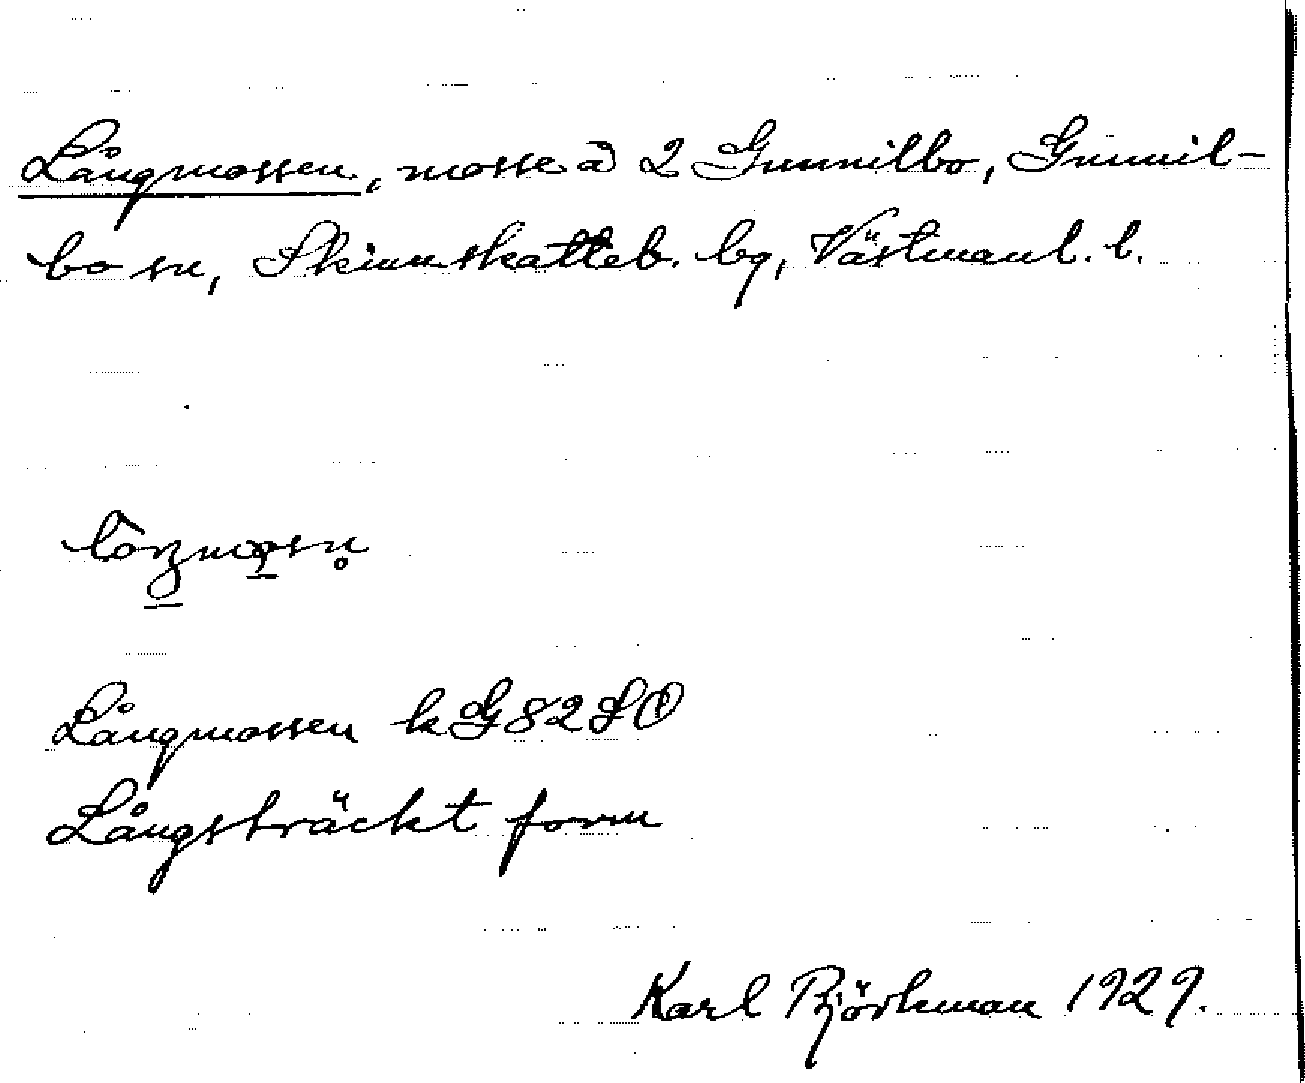 Långmossen, mosse å 2 Gunnilbo, Gunnil-
bo sn, Skinnskatteb. bg, Västmanl. l.
Långmossen k G 82 SO
Långsträckt form
Karl Björkman 1929.